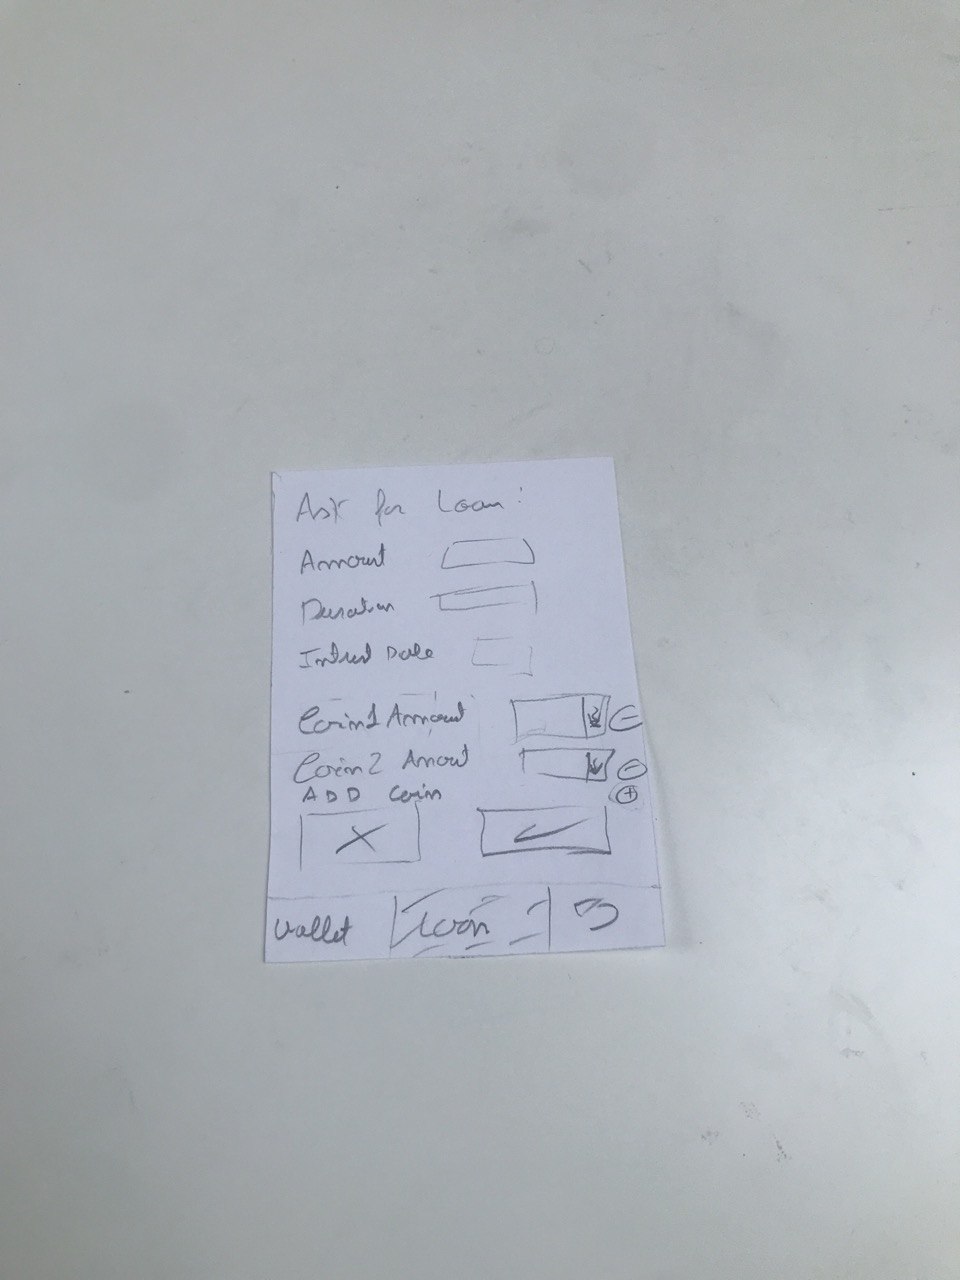 Ask for Loan:
Amount
Duration
Intrest Date
Coin1 Amount
Coin2 Amout
ADD Coin
wallet